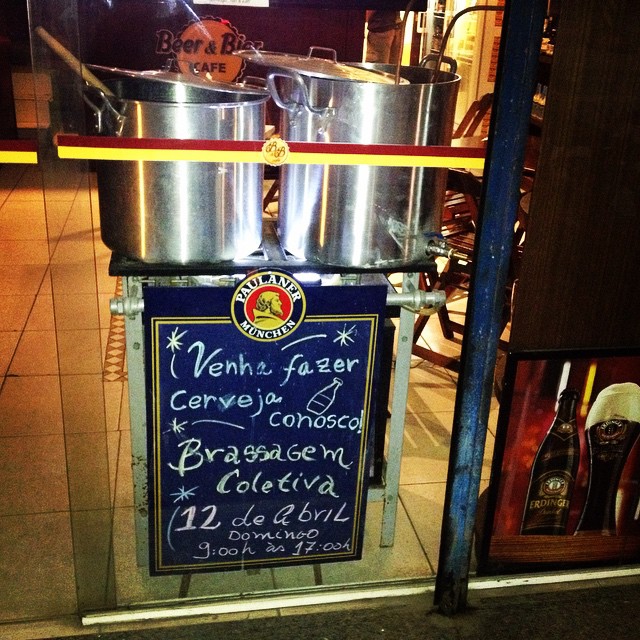 Beer & Bier
CAFE
PAULANER
MÜNCHEN
Venha fazer
Cerveja
conosco!
Brassagem
Coletiva
12 de Abril
Domingo
9:00h às 17:00h
ERDINGER